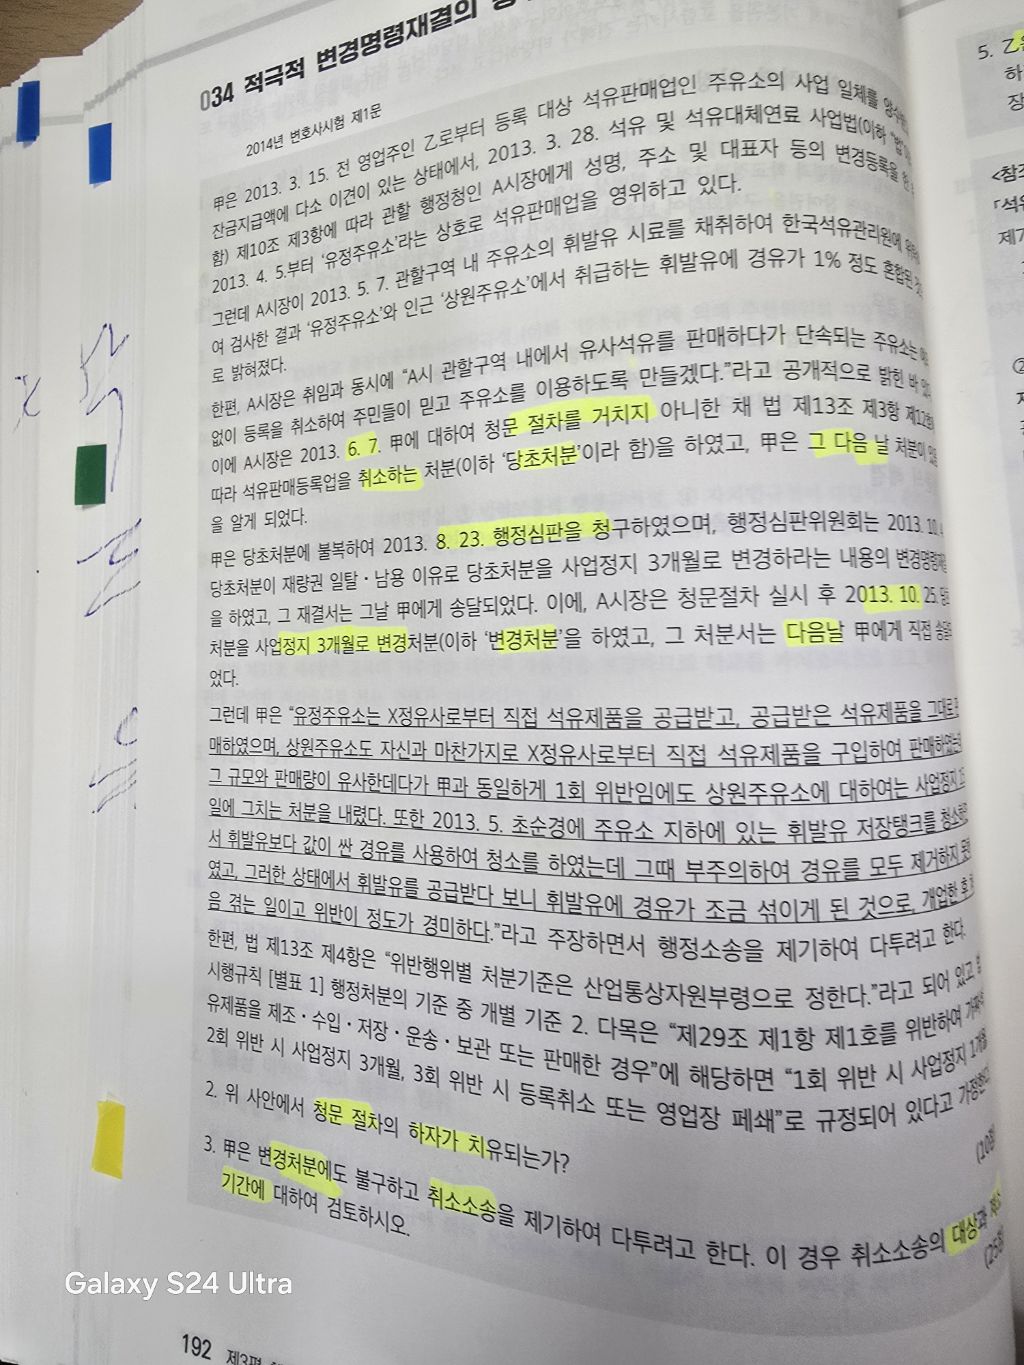 034 적극적 변경명령재결의
2014년 변호사시험 제1문
甲은 2013. 3. 15. 전 영업주인 乙로부터 등록 대상 석유판매업인 주유소의 사업 일체를
잔금지급액에 다소 이견이 있는 상태에서, 2013. 3. 28. 석유 및 석유대체연료 사업법(이하
함) 제10조 제3항에 따라 관할 행정청인 A시장에게 성명, 주소 및 대표자 등의 변경등록을 한
2013. 4. 5.부터 '유정주유소'라는 상호로 석유판매업을 영위하고 있다.
그런데 A시장이 2013. 5. 7. 관할구역 내 주유소의 휘발유 시료를 채취하여 한국석유관리원에
여 검사한 결과 '유정주유소'와 인근 '상원주유소'에서 취급하는 휘발유에 경유가 1% 정도 혼합된
로 밝혀졌다.
한편, A시장은 취임과 동시에 "A시 관할구역 내에서 유사석유를 판매하다가 단속되는 주유소는
없이 등록을 취소하여 주민들이 믿고 주유소를 이용하도록 만들겠다."라고 공개적으로 밝힌 바
이에 A시장은 2013. 6. 7. 甲에 대하여 청문 절차를 거치지 아니한 채 법 제13조 제3항 제12호에
따라 석유판매등록업을 취소하는 처분(이하 '당초처분'이라 함)을 하였고, 甲은 그 다음 날 처분이
을 알게 되었다.
甲은 당초처분에 불복하여 2013. 8. 23. 행정심판을 청구하였으며, 행정심판위원회는 2013. 10. 4.
당초처분이 재량권 일탈·남용 이유로 당초처분을 사업정지 3개월로 변경하라는 내용의 변경명령재결
을 하였고, 그 재결서는 그날 甲에게 송달되었다. 이에, A시장은 청문절차 실시 후 2013. 10. 25. 당초
처분을 사업정지 3개월로 변경처분(이하 '변경처분'을 하였고, 그 처분서는 다음날 甲에게 직접 송달되
었다.
그런데 甲은 "유정주유소는 X정유사로부터 직접 석유제품을 공급받고, 공급받은 석유제품을 그대로 판
매하였으며, 상원주유소도 자신과 마찬가지로 X정유사로부터 직접 석유제품을 구입하여 판매하였는데
그 규모와 판매량이 유사한데다가 甲과 동일하게 1회 위반임에도 상원주유소에 대하여는 사업정지 15
일에 그치는 처분을 내렸다. 또한 2013. 5. 초순경에 주유소 지하에 있는 휘발유 저장탱크를 청소하면
서 휘발유보다 값이 싼 경유를 사용하여 청소를 하였는데 그때 부주의하여 경유를 모두 제거하지 못하
였고, 그러한 상태에서 휘발유를 공급받다 보니 휘발유에 경유가 조금 섞이게 된 것으로, 개업한 후 처
음 겪는 일이고 위반이 정도가 경미하다."라고 주장하면서 행정소송을 제기하여 다투려고 한다.
한편, 법 제13조 제4항은 "위반행위별 처분기준은 산업통상자원부령으로 정한다."라고 되어 있고, 법
시행규칙 [별표 1] 행정처분의 기준 중 개별 기준 2. 다목은 "제29조 제1항 제1호를 위반하여 가짜석
유제품을 제조·수입·저장·운송·보관 또는 판매한 경우"에 해당하면 "1회 위반 시 사업정지 1개월,
2회 위반 시 사업정지 3개월, 3회 위반 시 등록취소 또는 영업장 폐쇄"로 규정되어 있다고 가정한다.
2. 위 사안에서 청문 절차의 하자가 치유되는가?
(10점)
3. 甲은 변경처분에도 불구하고 취소소송을 제기하여 다투려고 한다. 이 경우 취소소송의 대상과 제소
기간에 대하여 검토하시오.
(25점)
192 제3편
5. 乙
하
장
<참조
「석유
제7
②
Galaxy S24 Ultra